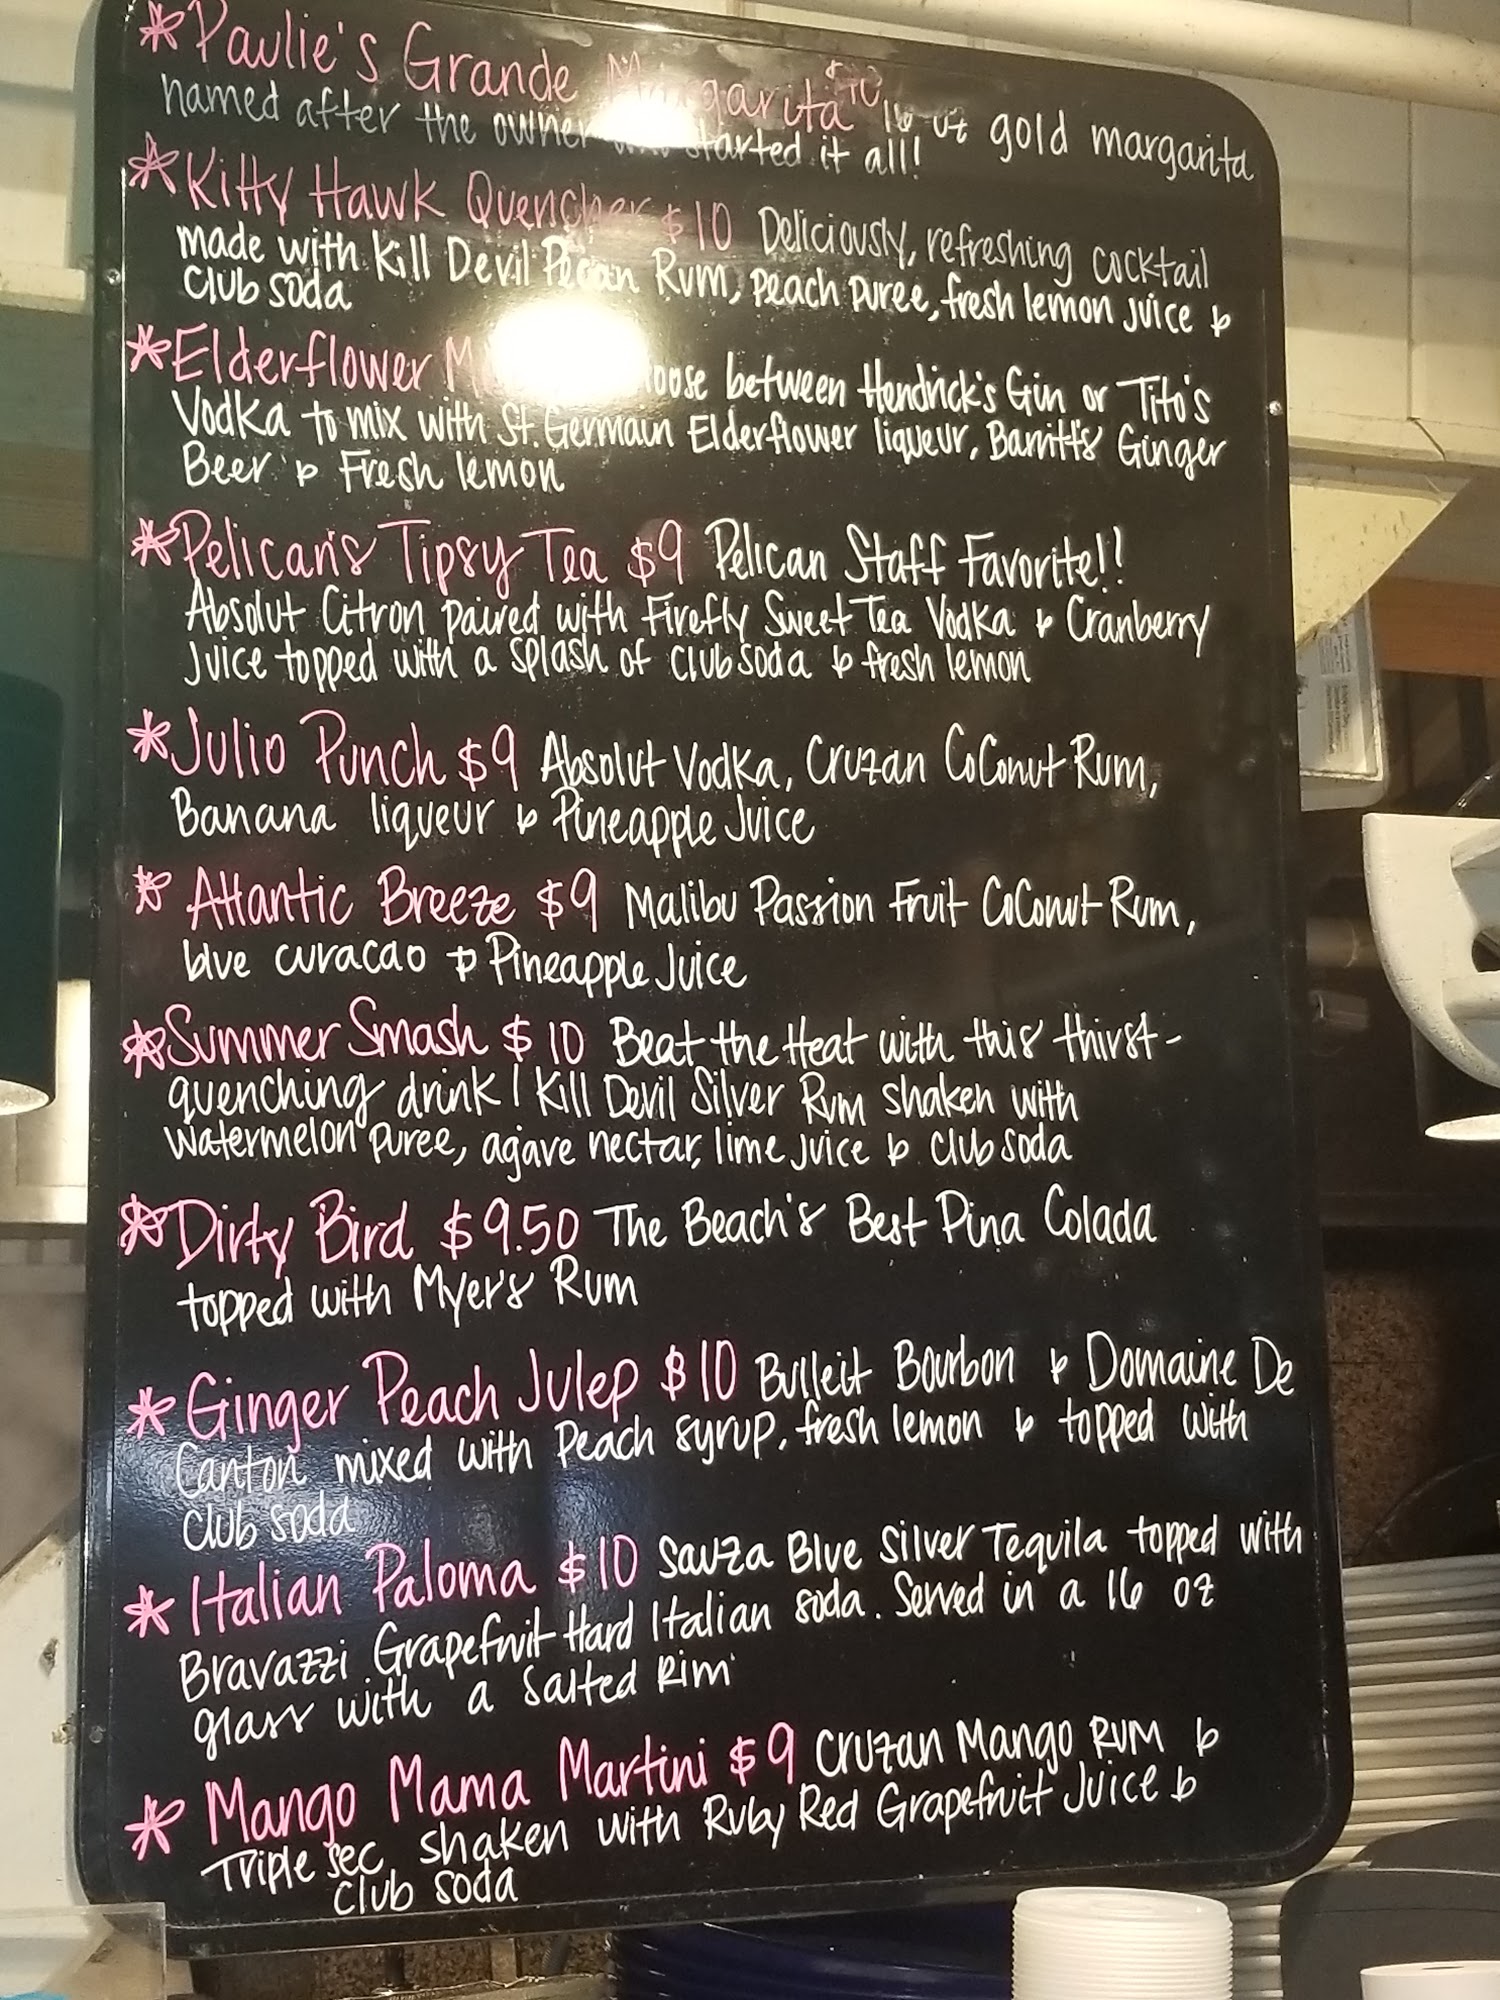 *Paulie's Grande Margarita $10 16 oz gold margarita
named after the owner who started it all!
*Kitty Hawk Quencher $10 Deliciously, refreshing cocktail
made with Kill Devil Pecan Rum, peach puree, fresh lemon juice &
Club soda
*Elderflower between Hendrick's Gin or Tito's
Vodka to mix with St. Germain Elderflower liqueur, Barritt's Ginger
Beer & Fresh lemon
*Pelican's Tipsy Tea $9 Pelican Staff Favorite!!
Absolut Citron paired with Firefly Sweet Tea Vodka & Cranberry
Juice topped with a splash of club soda & fresh lemon
*Julio Punch $9 Absolut Vodka, Cruzan CoConut Rum,
Banana liqueur & Pineapple Juice
*Atlantic Breeze $9 Malibu Passion Fruit CoConut Rum,
blue curacao & Pineapple Juice
*Summer Smash $10 Beat the Heat with this thirst-
quenching drink! Kill Devil Silver Rum shaken with
watermelon puree, agave nectar, lime juice & club soda
*Dirty Bird $9.50 The Beach's Best Pina Colada
topped with Myer's Rum
*Ginger Peach Julep $10 Bulleit Bourbon & Domaine De
Canton mixed with Peach syrup, fresh lemon & topped with
club soda
*Italian Paloma $10 Sauza Blue Silver Tequila topped with
Bravazzi Grapefruit Hard Italian soda. Served in a 16 oz
glass with a salted Rim
*Mango Mama Martini $9 Cruzan Mango Rum &
Triple sec shaken with Ruby Red Grapefruit Juice &
club soda